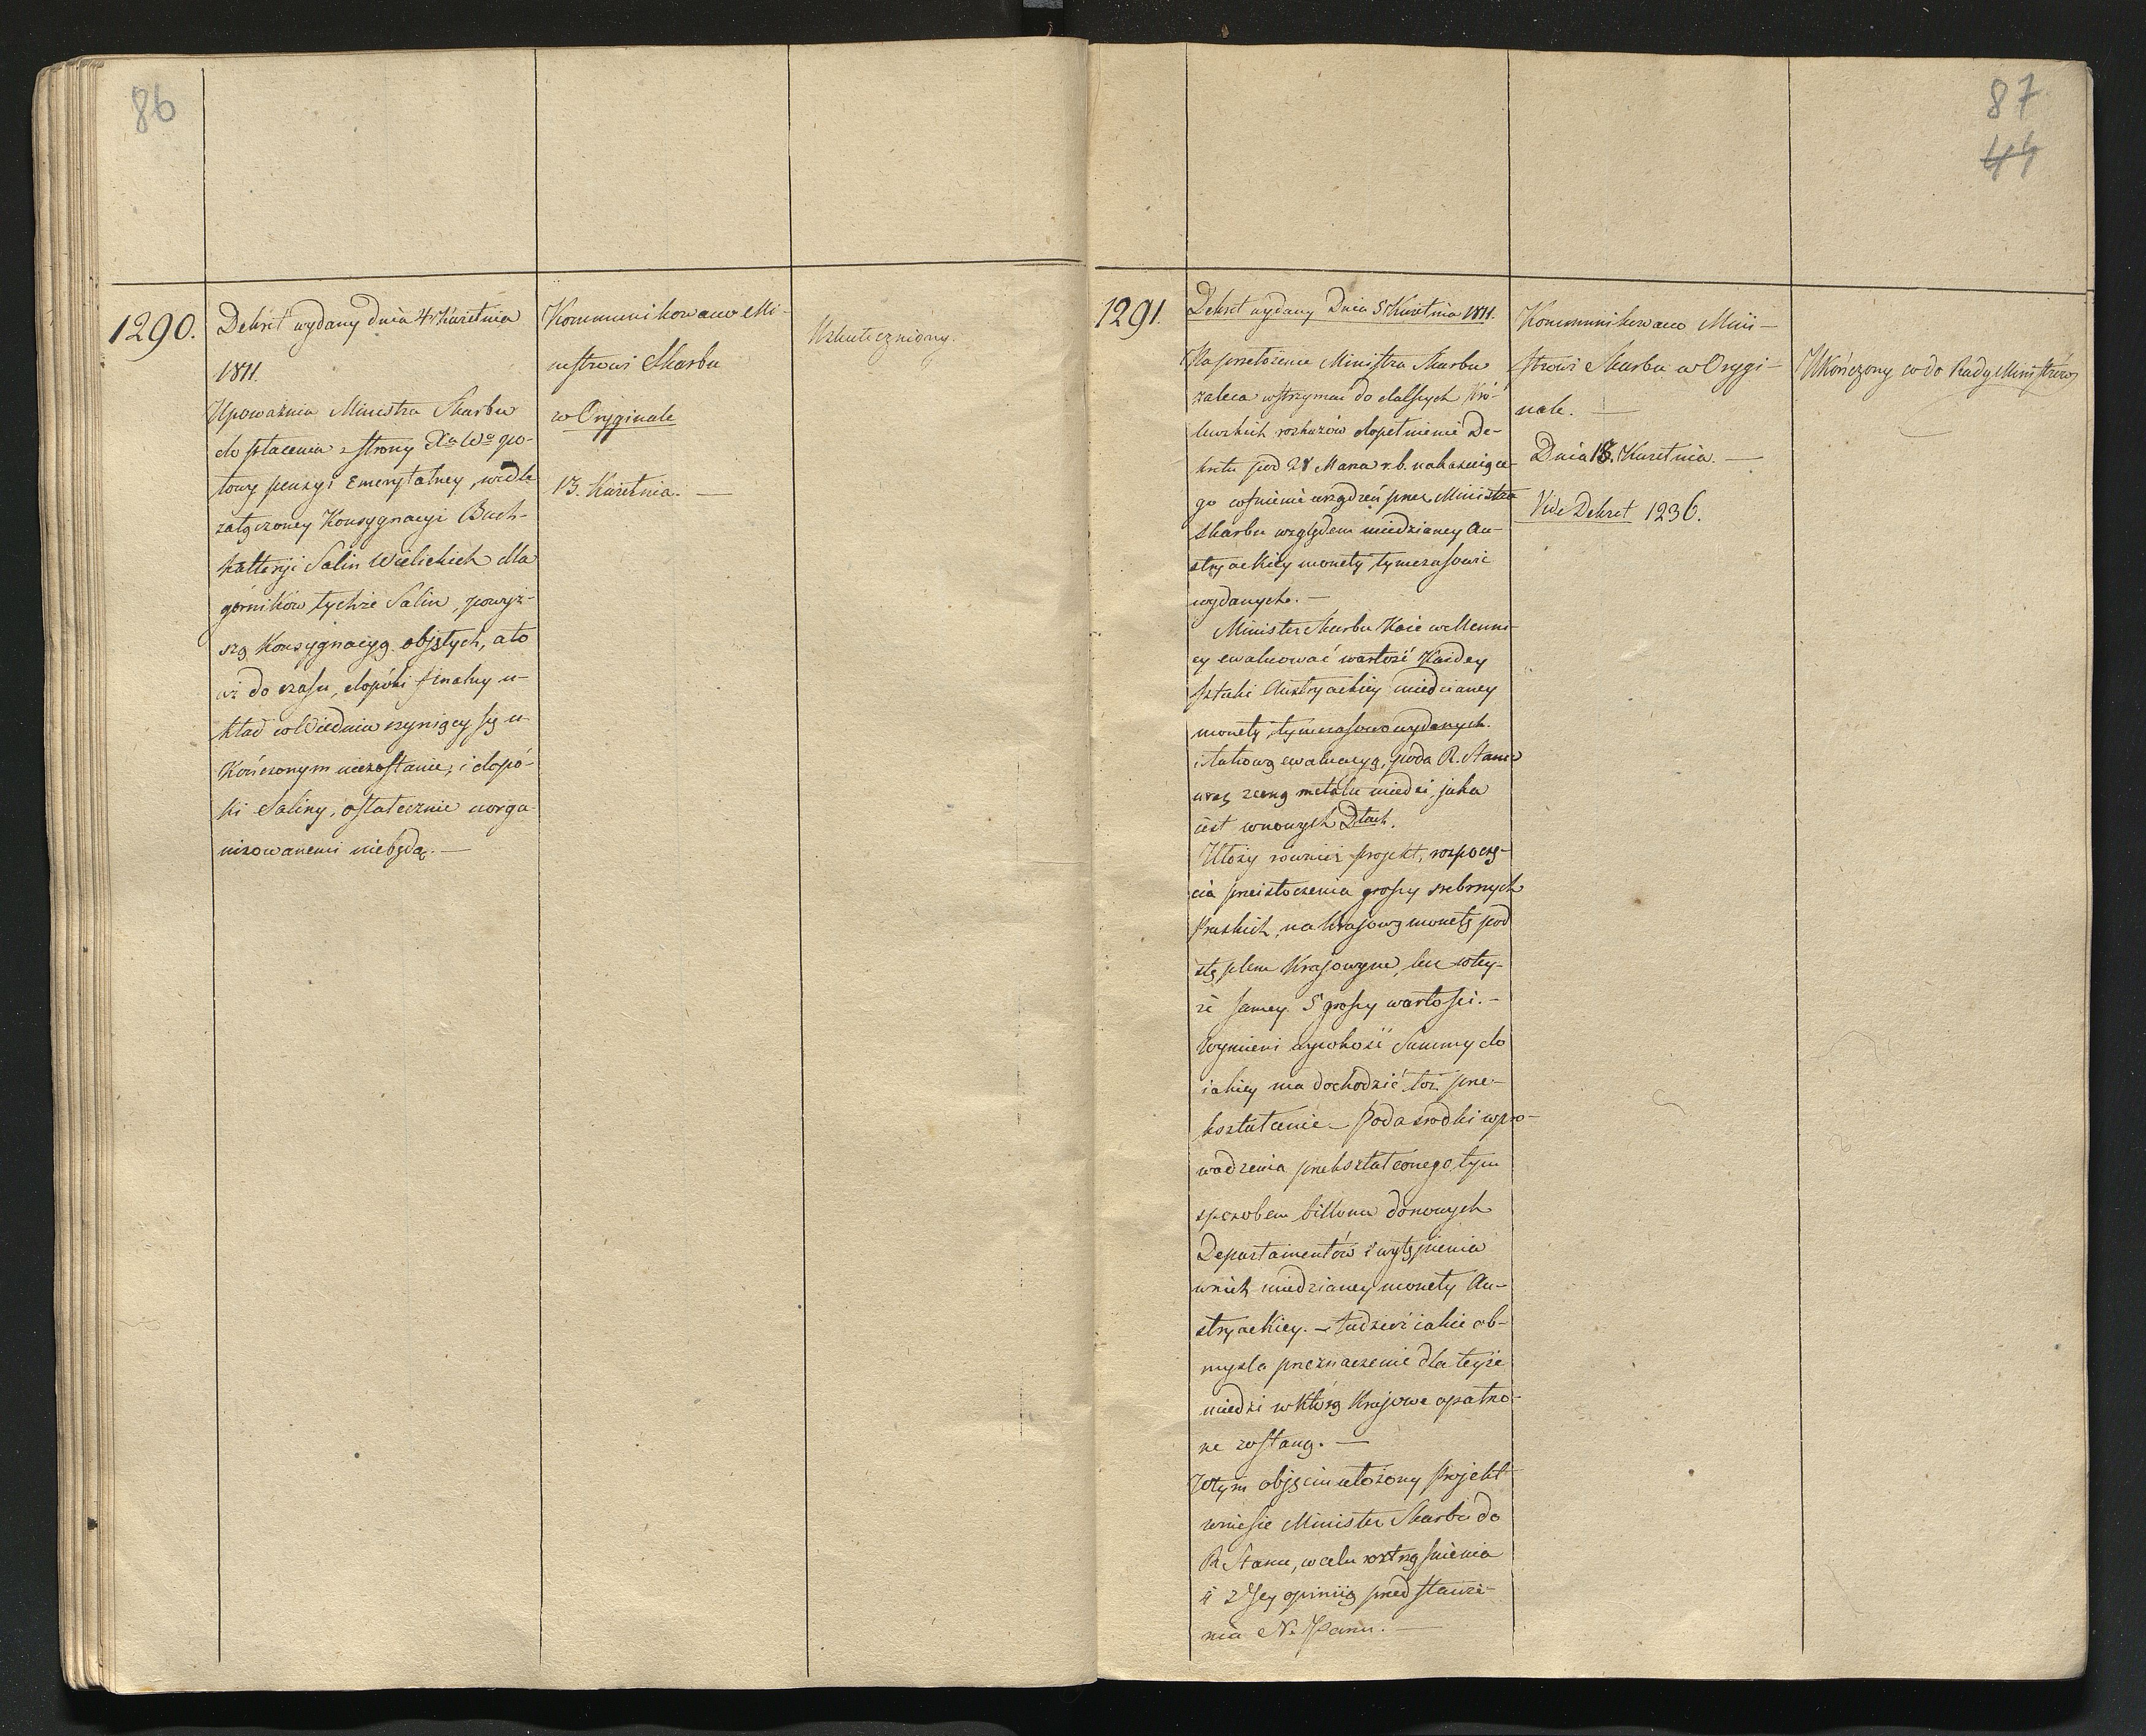 86
1290.
Dekret wydany dnia 4 Kwietnia
1811.
Upoważnia Ministra Skarbu
do płacenia z strony Xa Wo po-
łowy pensyi Emerytalney, wedle
załączoney Konsygnacyi Buch-
halteryi Salin Wielickich dla
gorników tychże Salin, powyż-
szą Konsygnacyą objętych, a to
aż do czasu, dopóki finalny u-
kład w Wiedniu czyniący się u-
kończonym niezostanie, i dopó-
ki Saliny, ostatecznie uorga-
nizowanemi niebędą. —
Kommunikowano Mi-
nistrowi Skarbu
w Oryginale
13. Kwietnia. —
Uskuteczniony.
87
44
1291.
Dekret wydany Dnia 5 Kwietnia 1811.
Na przełożenie Ministra Skarbu
zaleca wstrzymać do dalszych Kró-
lewskich rozkazów dopełnienie De-
kretu pod 28 Marca r. b. nakazujące-
go cofnienie urządzeń przez Ministra
Skarbu względem miedzianey Au-
stryackiey monety tymczasowie
wydanych. —
Minister Skarbu Każe w Menni-
cy ewaluować wartość Każdey
sztuki Austryackiey miedzianey
monety, tymczasowo wydanych.
i takową ewaluacyą, poda R. Stanu
wraz z ceną metalu miedzi, jaka
iest w nowych Dtach.
Ułoży również projekt, rozpoczę-
cia przeistoczenia groszy srebrnych
Pruskich, na Krajową monetę pod
stęplem Krajowym, lecz w tey-
że samey 5 groszy wartości. —
Wymieni wysokość Summy do
iakiey ma dochodzić toż prze-
kształcenie — Poda srodki wpro-
wadzenia przekształconego tym
sposobem billonu do nowych
Departamentów i wytępienia
w nich miedzianey monety Au-
stryackiey. — Tudzież iakie ob-
mysla przeznaczenie dla teyże
miedzi w którą Krajowe opatrzo-
ne zostaną. —
W tym objęciu ułożony Projekt
wniesie Minister Skarbu do
R. Stanu, w celu roztrząśnienia
i z Jey opiniią przedstawie-
nia N. Panu. —
Kommunikowano Mini-
strowi Skarbu w Orygi-
nale. —
Dnia 18. Kwietnia. —
Vide Dekret 1236.
Ukończony co do Rady Ministrów